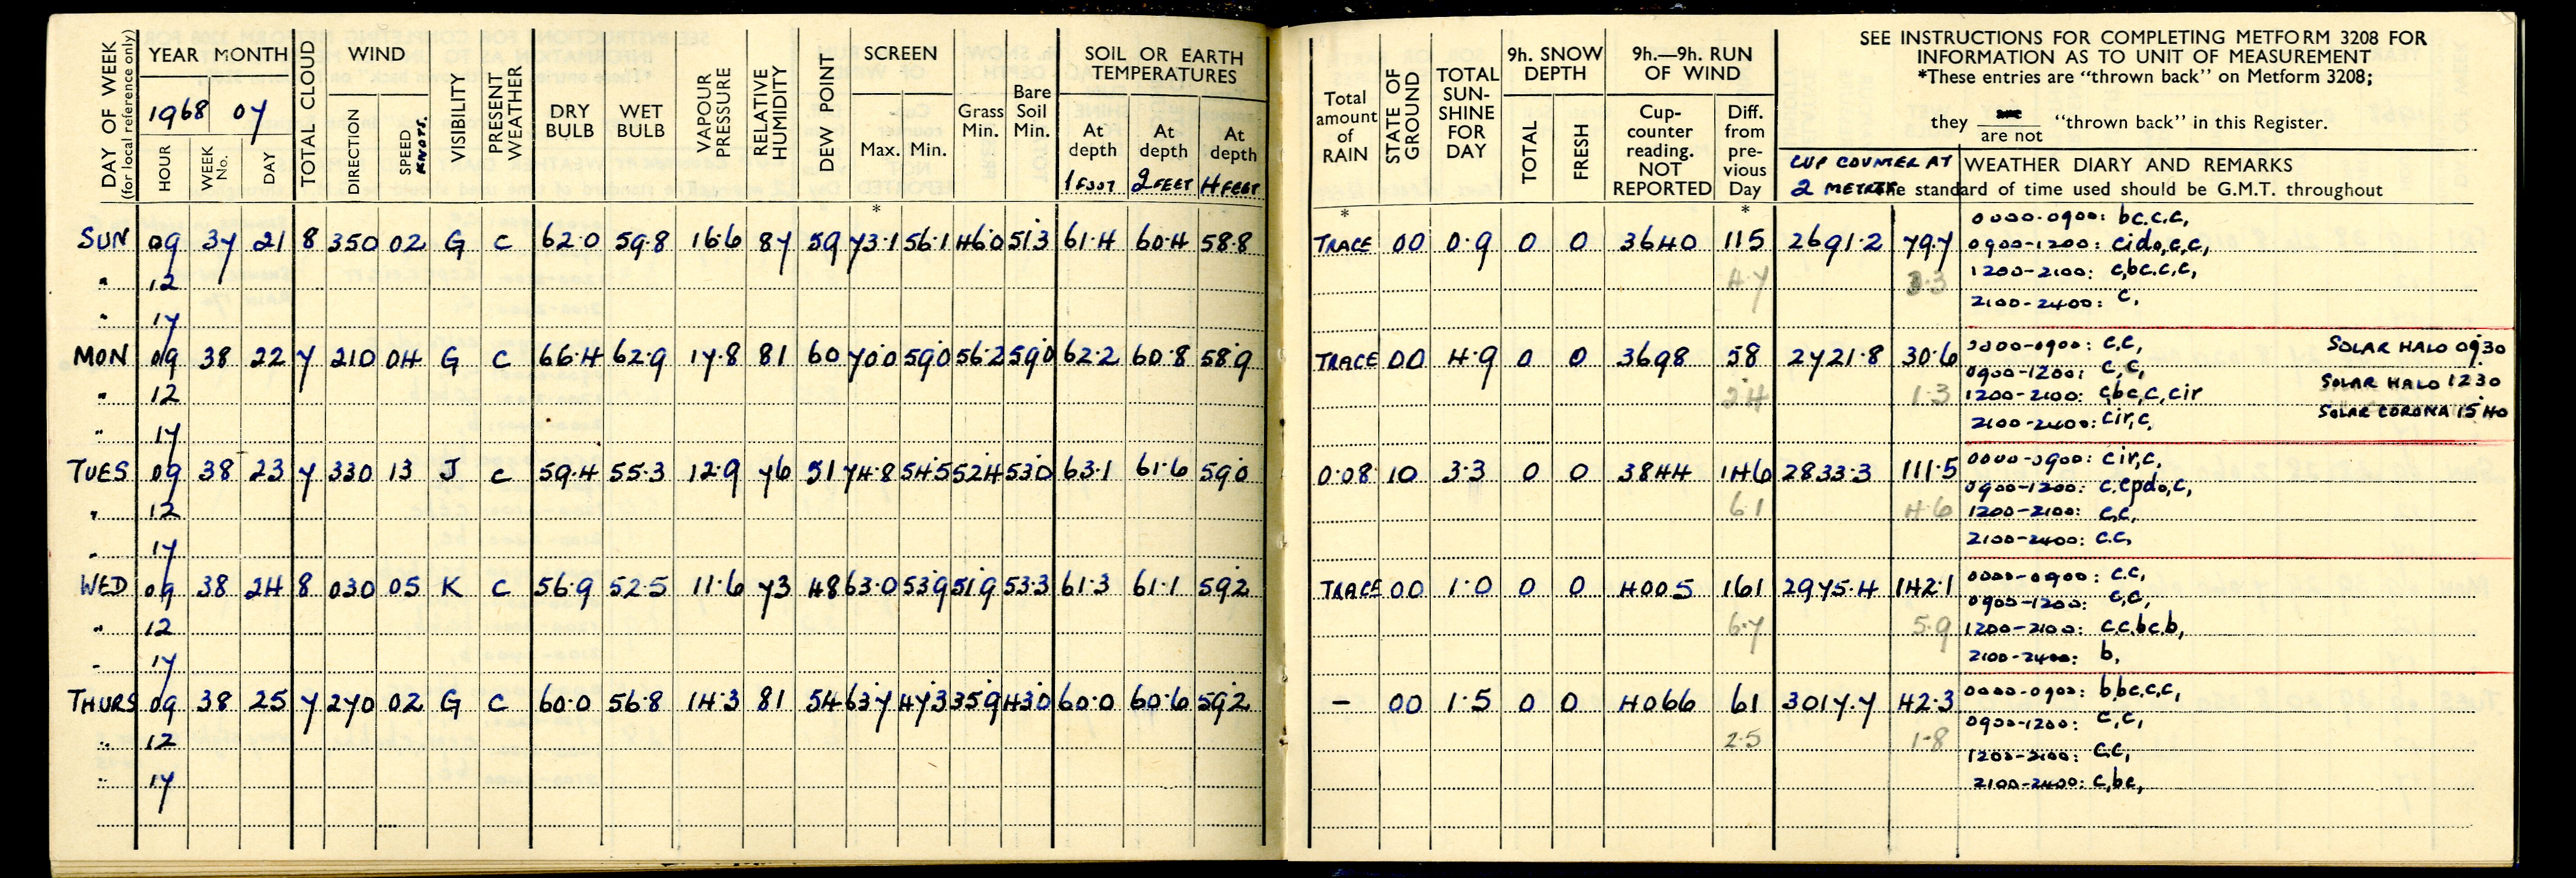 DAY OF WEEK (for local reference only)
YEAR MONTH
1968 07
HOUR
WEEK No.
DAY
TOTAL CLOUD
WIND
DIRECTION
SPEED KNOTS.
VISIBILITY
PRESENT WEATHER
DRY BULB
WET BULB
VAPOUR PRESSURE
RELATIVE HUMIDITY
DEW POINT
SCREEN
Max. Min.
Grass Min.
Bare Soil Min.
SOIL OR EARTH TEMPERATURES
At depth 1 FOOT
At depth 2 FEET
At depth 4 FEET
Total amount of RAIN
STATE OF GROUND
TOTAL SUN-SHINE FOR DAY
9h. SNOW DEPTH
TOTAL
FRESH
9h.—9h. RUN OF WIND
Cup-counter reading. NOT REPORTED
Diff. from pre-vious Day
SEE INSTRUCTIONS FOR COMPLETING METFORM 3208 FOR
INFORMATION AS TO UNIT OF MEASUREMENT
*These entries are "thrown back" on Metform 3208;
they are / are not "thrown back" in this Register.
CUP COUNTER AT 2 METRES
WEATHER DIARY AND REMARKS
The standard of time used should be G.M.T. throughout
* * *
SUN 09 37 21 8 350 02 G C 62.0 59.8 16.6 87 59 73.1 56.1 46.0 51.3 61.4 60.4 58.8 TRACE 00 0.9 0 0 3640 115 2691.2 79.7
0000-0900: bc.c.c,
0900-1200: cido,c,c,
" 12 4.7 3.3 1200-2100: c,bc.c.c,
2100-2400: c,
" 17
MON 09 38 22 7 210 04 G C 66.4 62.9 17.8 81 60 70.0 59.0 56.2 59.0 62.2 60.8 58.9 TRACE 00 4.9 0 0 3698 58 2721.8 30.6
0000-0900: c,c, SOLAR HALO 0930
0900-1200: c,c,
SOLAR HALO 1230
" 12 2.4 1.3 1200-2100: cbc,c,cir
SOLAR CORONA 1540
2100-2400: cir,c,
" 17
TUES 09 38 23 7 330 13 J C 59.4 55.3 12.9 76 51 74.8 54.5 52.4 53.0 63.1 61.6 59.0 0.08 10 3.3 0 0 3844 146 2833.3 111.5
0000-0900: cir,c,
0900-1200: c.cpdo,c,
" 12 6.1 4.6 1200-2100: c,c,
2100-2400: c.c,
" 17
WED 09 38 24 8 030 05 K C 56.9 52.5 11.6 73 48 63.0 53.9 51.9 53.3 61.3 61.1 59.2 TRACE 00 1.0 0 0 4005 161 2975.4 142.1
0000-0900: c.c,
0900-1200: c,c,
" 12 6.7 5.9 1200-2100: c.c.bc.b,
2100-2400: b,
" 17
THURS 09 38 25 7 270 02 G C 60.0 56.8 14.3 81 54 63.7 47.3 35.9 43.0 60.0 60.6 59.2 — 00 1.5 0 0 4066 61 3017.7 42.3
0000-0900: b,bc.c.c,
0900-1200: c,c,
" 12 2.5 1.8
1200-2100: c.c,
" 17 2100-2400: c,bc,